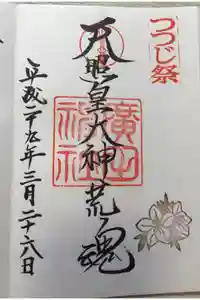 つつじ祭
天照皇大神荒魂
廣田
神社
平成二十九年三月二十六日